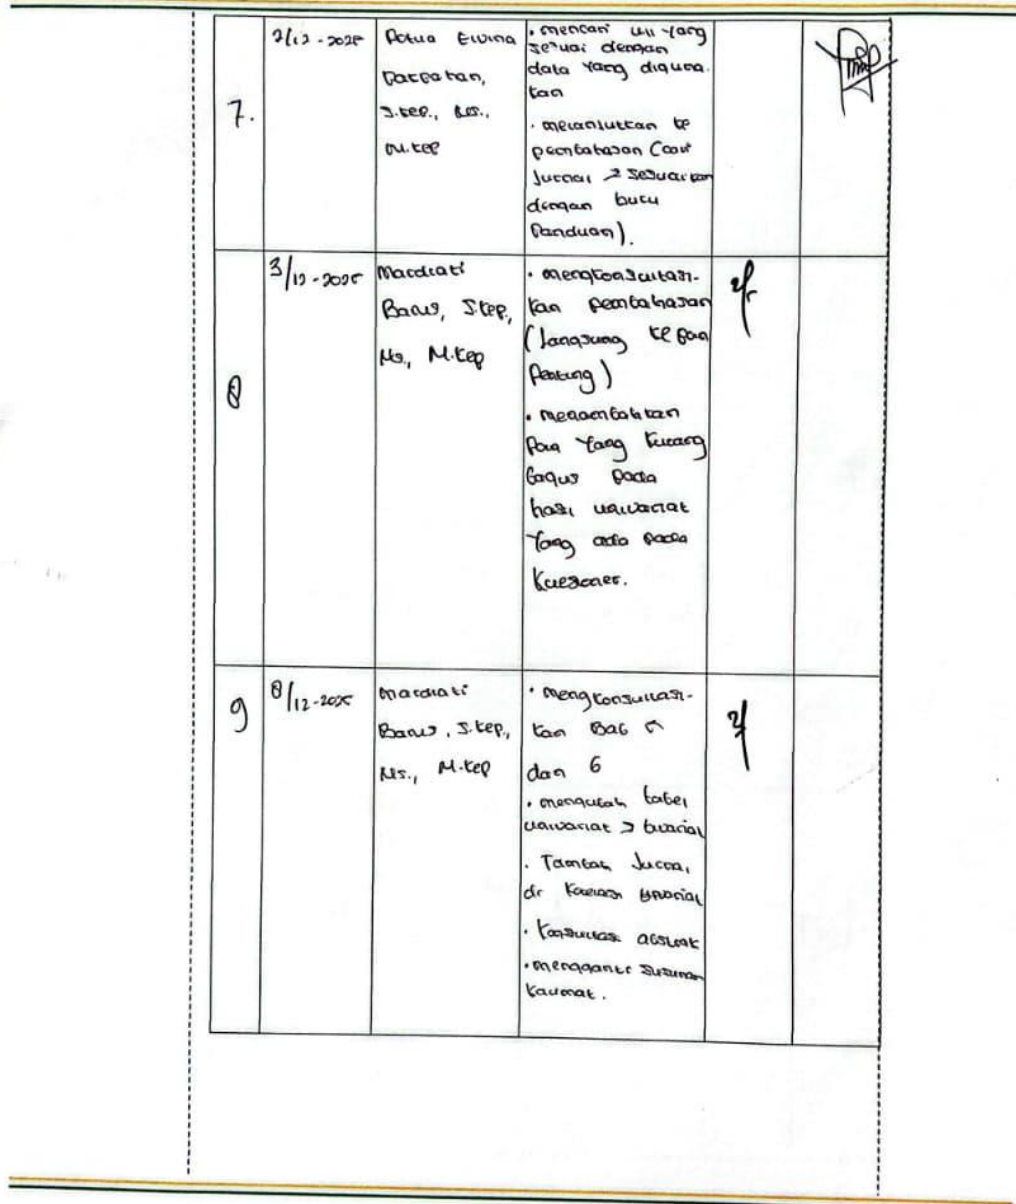 7.
2/12-2025
Rotua Elvina
Pakpahan,
S.Kep., Ns.,
M.Kep
• mencari uji yang
sesuai dengan
data yang diguna-
kan
• melanjutkan ke
pembahasan (cari
Jurnal 2 sesuaikan
dengan buku
Panduan).
8
3/12-2025
Mardiati
Barus, S.Kep.,
Ns., M.Kep
• mengkonsultasi-
kan pembahasan
(langsung ke poin
Penting)
• menambahkan
Poin yang kurang
bagus pada
hasil univariat
Yang ada pada
Kuesioner.
9
8/12-2025
Mardiati
Barus, S.Kep.,
Ns., M.Kep
• mengkonsultasi-
kan Bab 5
dan 6
• mengubah tabel
univariat > bivariat
• Tambah Jurnal
• Konsultasi abstrak
• mengganti susunan
kalimat.